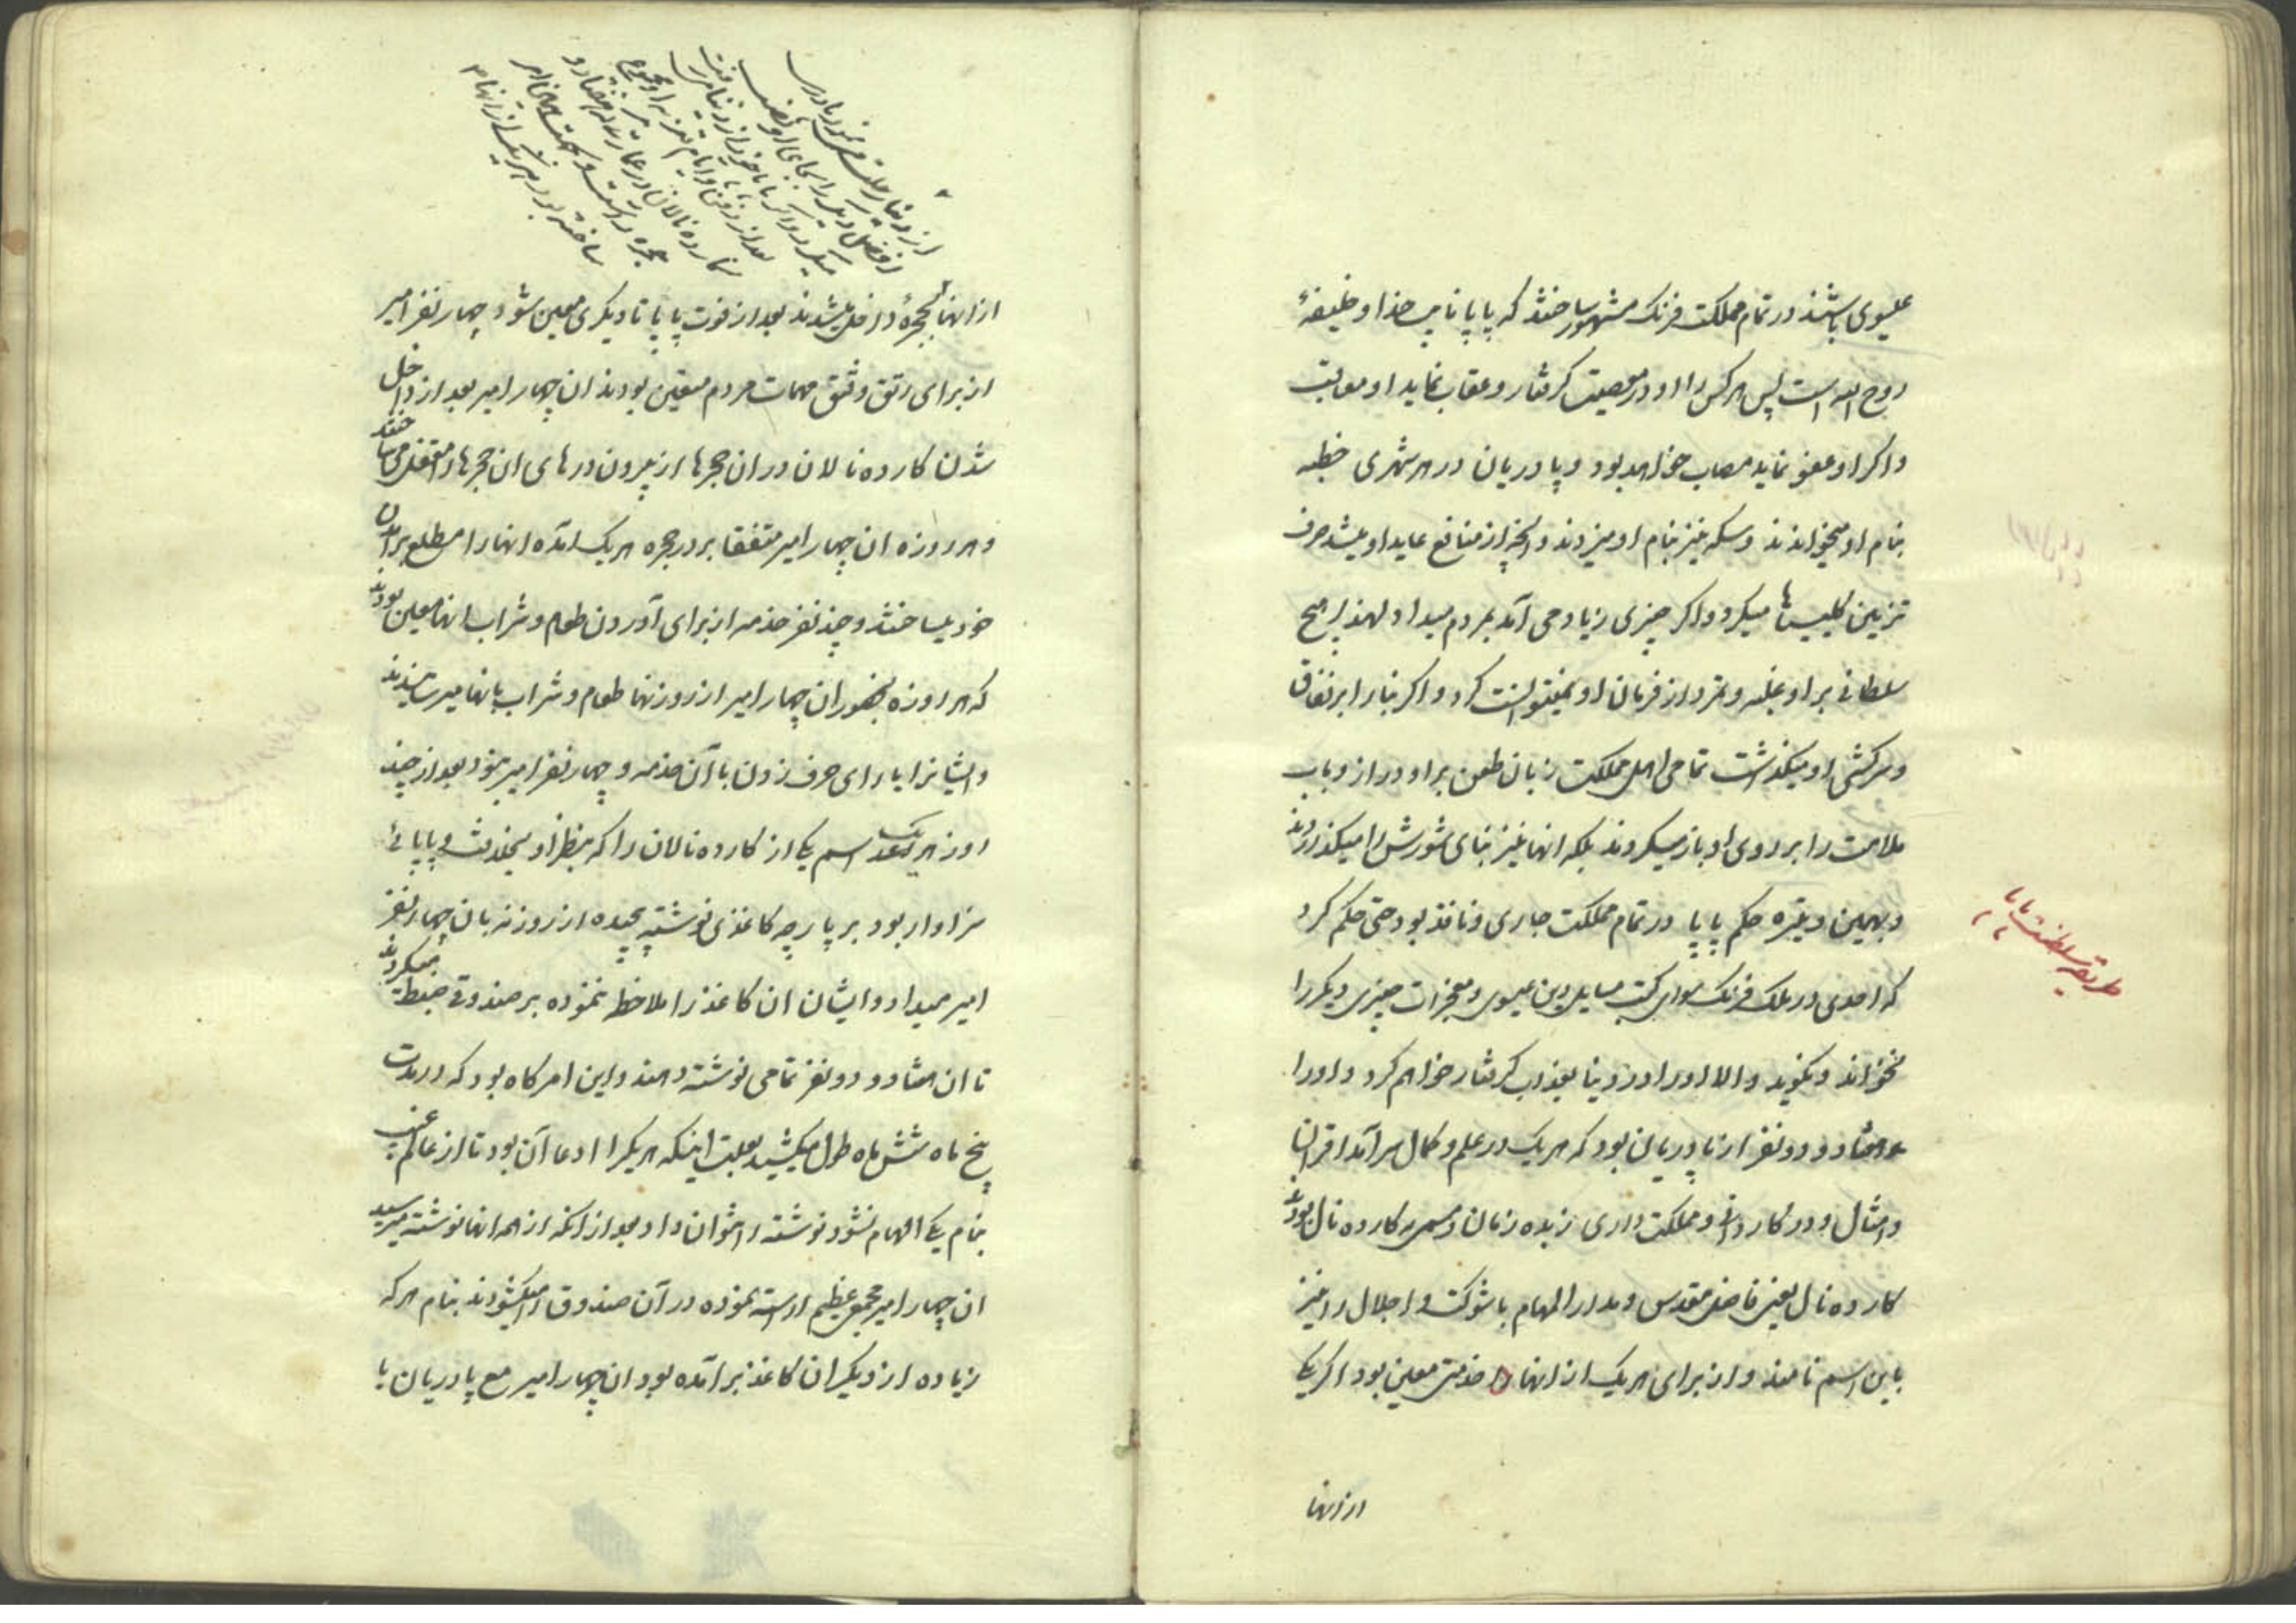 عیسوی باشند در تمام مملکت فرنک مشهور ساختند که پاپا نایب خدا و خلیفهٔ
روح الله است پس هر کس را او در معصیت کرفتار و عقاب نماید او معاقب
و اکر او عفو نماید مصاب خواهد بود و پادریان در هر شهری خطبه
بنام او میخواندند و سکه نیز بنام او میزدند و آنچه از منافع عاید او میشد صرف
تزیین کلیسیاها میکرد و اکر چیزی زیاد می آمد بمردم میداد لهذا هیچ
سلطانی بر او غلبه و تمرد از فرمان او نمیتوانست کرد و اکر بنا را بر نفاق
و سرکشی او میکذاشت تمامی اهل مملکت زبان طعن بر او دراز و باب
ملامت را بر روی او باز میکردند بلکه انها نیز بنای شورش را میکذاردند
و بهمین وتیره حکم پاپا در تمام مملکت جاری و نافذ بود حتی حکم کرد
که احدی در ملک فرنک سوای کتب مسایل دین عیسوی و معجزات چیزی دیکر را
نخواند و نکوید و الا او را در دنیا بعذاب کرفتار خواهم کرد و او را
هفتاد و دو نفر از پادریان بود که هر یک در علم و کمال سرآمد اقران
و امثال و در کاردانی و مملکت داری زبده زمان و مسمی بکارده نال بودند
کارده نال یعنی فاضل مقدس و مدار المهام با شوکت و اجلال را نیز
باین اسم نامند و از برای هر یک از انها خدمتی معین بود اکر یکی
از انها
طریقه سلطنت پاپا
از انها بحجرهٔ داخل میشدند بعد از فوت پاپا تا دیکری معین شود چهار نفر امیر
از برای رتق و فتق مهمات مردم معین بودند ان چهار امیر بعد از داخل
شدن کارده نالان در ان حجرها از بیرون درهای ان حجرها را مقفل میساختند
و هر روزه ان چهار امیر متفقا بر در حجره هر یک آمده انها را مطلع بر آمدن
خود میساختند و چند نفر خدمه از برای آوردن طعام و شراب انها معین بودند
که هر روزه بحضور ان چهار امیر از روزنها طعام و شراب بانها میرسانیدند
و ایشانرا یارای حرف زدن با آن خدمه و چهار نفر امیر نبود بعد از چند
روز هر یک اسم یکی از کارده نالان را که بنظر او پاپائی
سزاوار بود بر پارچه کاغذی نوشته پیچیده از روزنه بان چهار نفر
امیر میداد و ایشان ان کاغذ را ملاحظه ننموده بر صندوقی ضبط میکردند
تا ان هفتاد و دو نفر تمامی نوشته دهند و این امر کاه بود که در مدت
پنج ماه شش ماه طول میکشید بعلت اینکه هر یکرا ادعا آن بود تا از عالم غیب
بنام یکی الهام نشود نوشته را نتوان داد بعد از انکه از همه انها نوشته میرسید
ان چهار امیر مجمع عظیم آراسته نموده در آن صندوق را میکشودند بنام هر که
زیاده از دیکران کاغذ برآمده بود ان چهار امیر مع پادریان با